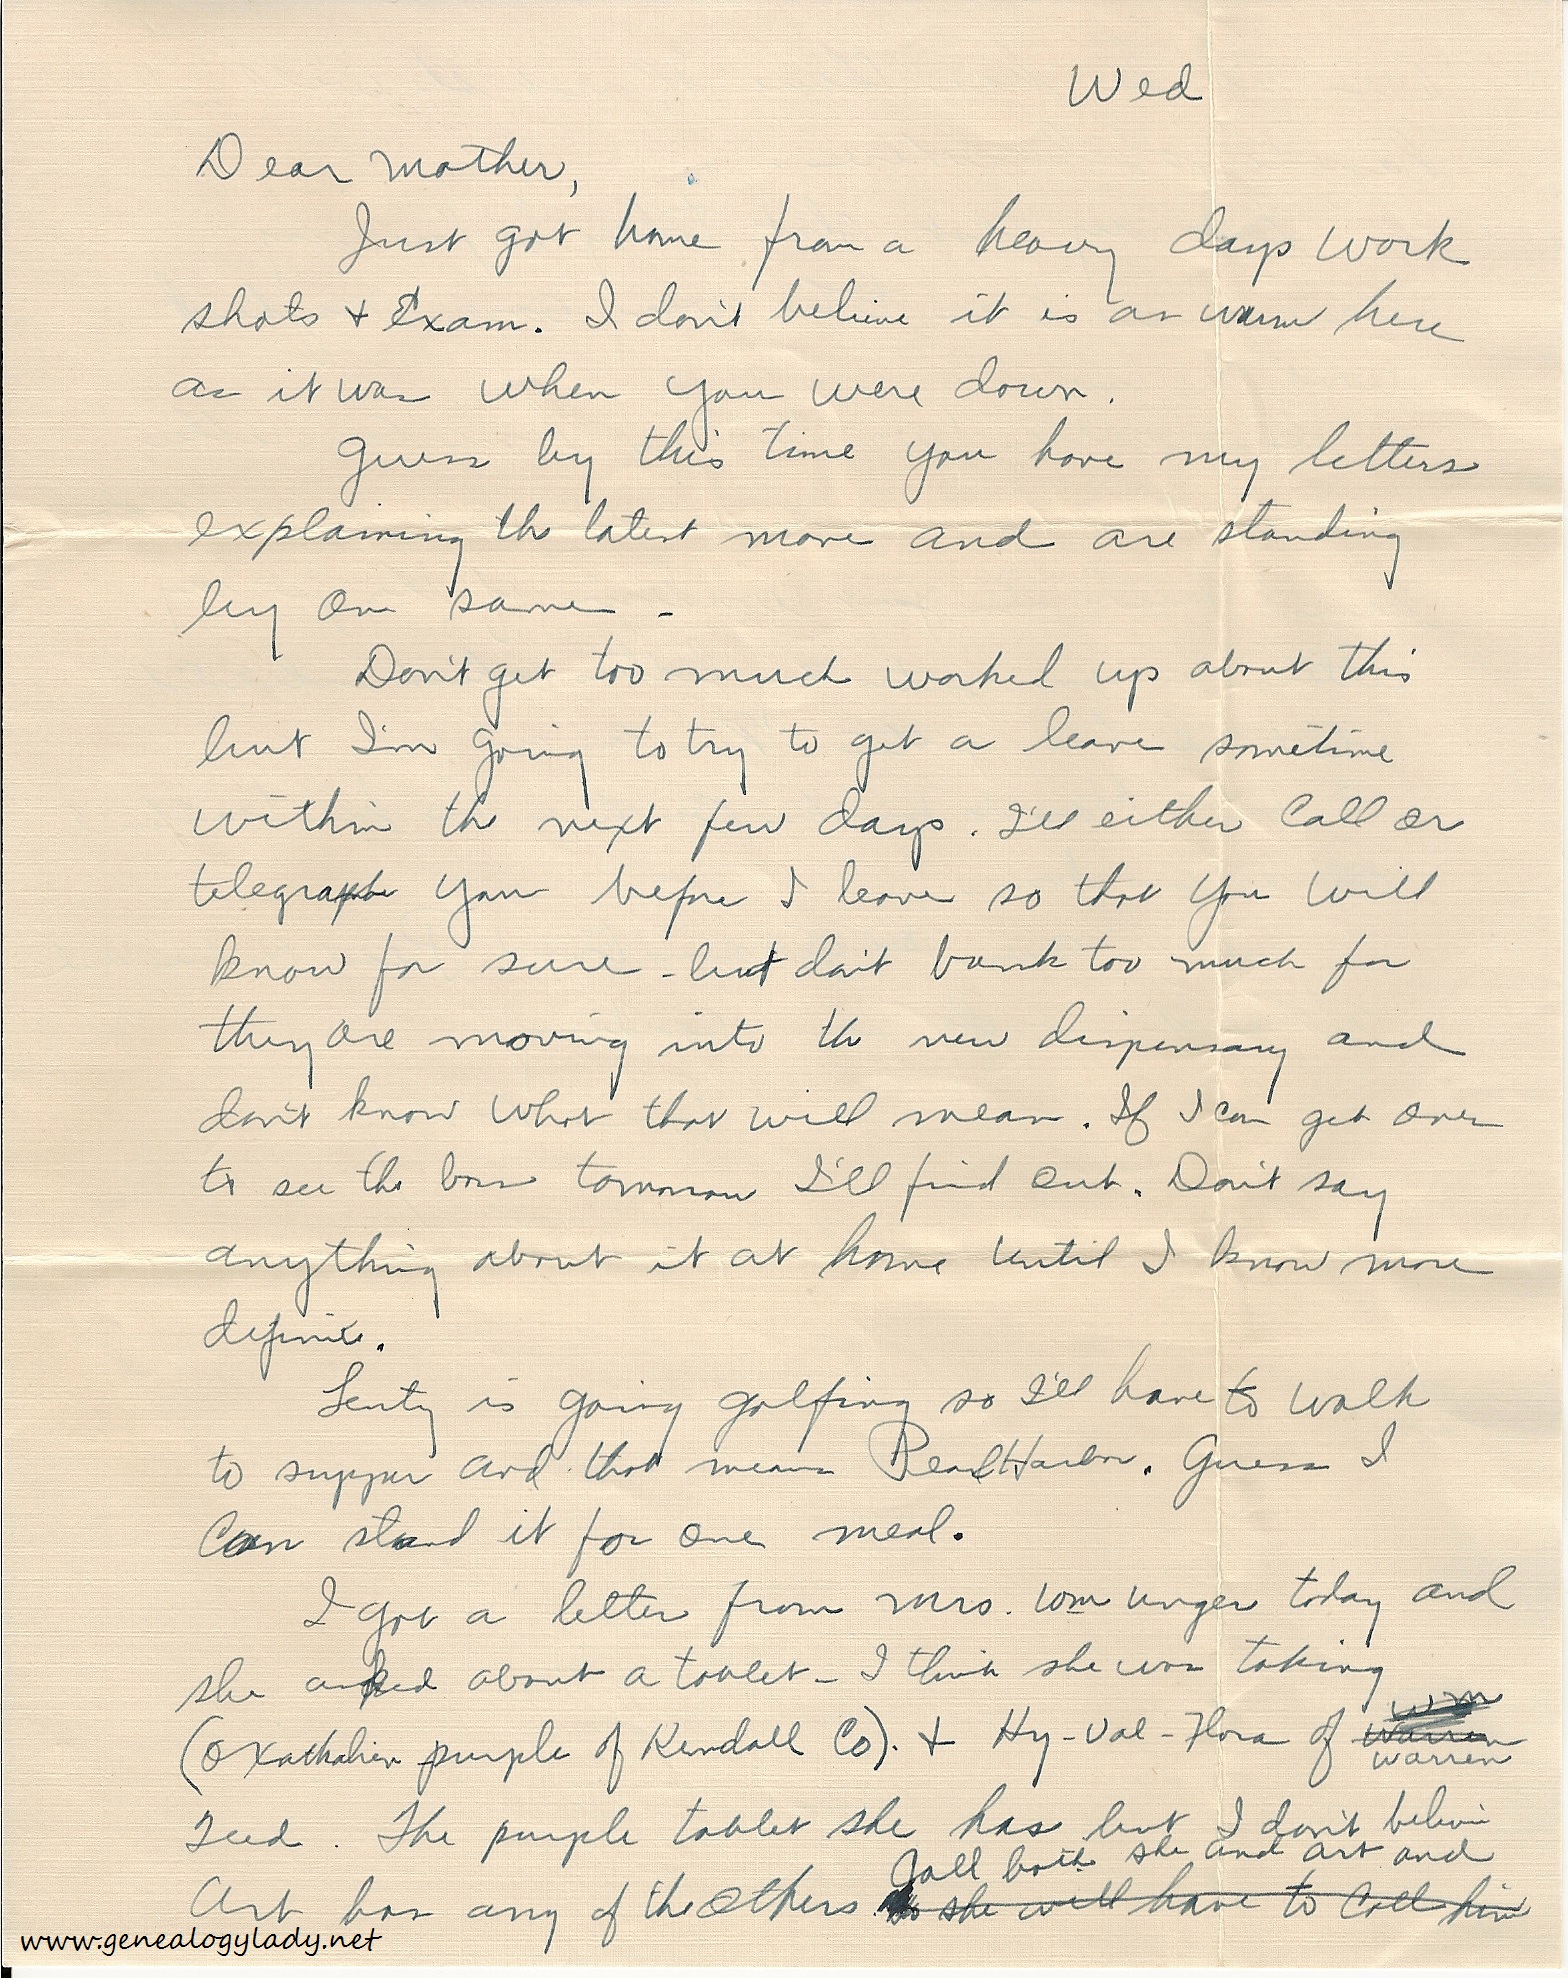 Wed
Dear Mother,
Just got home from a heavy days work
shots + Exam. I don't believe it is as warm here
as it was when you were down.
Guess by this time you have my letters
explaining the latest move and are standing
by on same -
Don't get too much worked up about this
but I'm going to try to get a leave sometime
within the next few days. I'll either Call or
telegraph you before I leave so that you will
know for sure - but don't bank too much for
they are moving into the new dispensary and
don't know what that will mean. If I can get over
to see the boss tomorrow I'll find out. Don't say
anything about it at home until I know more
definite.
Lenty is going golfing so I'll have to walk
to supper and that means Pearl Harbor. Guess I
Can stand it for one meal.
I got a letter from Mrs. Wm Unger today and
she asked about a tablet - I think she was taking
Wm
(Oxathalien purple of Kendall Co). + Hy-Val-Flora of Warren
Warren
Teed. The purple tablet she has but I don't believe
Call both she and Art and
Art has any of the others. So she will have to Call him
www.genealogylady.net